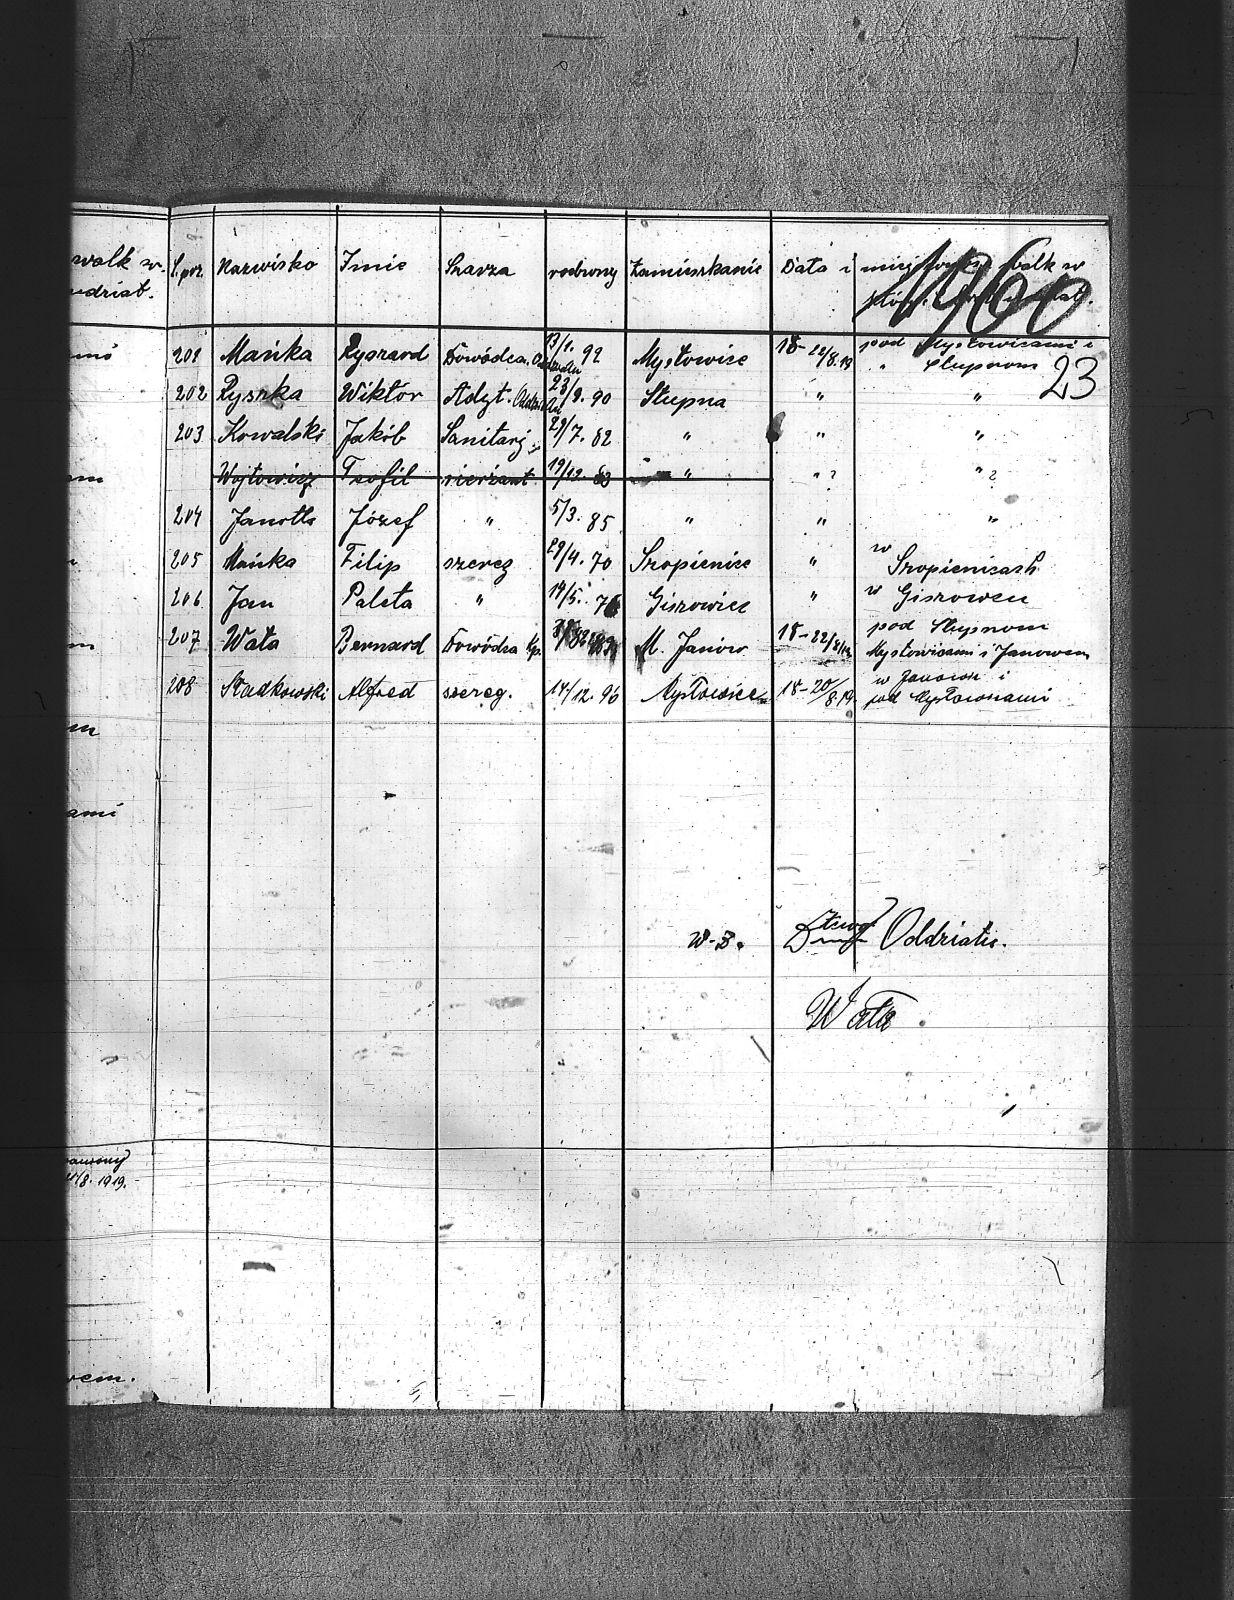 walk w
udziat.
L.poz. Nazwisko Imie Szarza rodzony Zamieszkanie Data i miejscow. walk w
któr.
160
23
201 Mańka Ryszard Dowódca 13/1. 92 Mysłowice 18-22/8.19 pod Mysłowicami i
" Słupnom
202 Ryszka Wiktór Adyt. 23/9. 90 Słupna " "
203 Kowalski Jakób Sanitarj 29/7. 82 " " "
Wojtowicz Teofil sierżant 19/12. " " ? " ?
204 Janotta Józef " 5/3. 85 " " "
205 Mańka Filip szereg 29/4. 70 Szopienice " w Szopienicach
206 Jan Paleta " 14/5. Giszowiec " w Giszowcu
207 Wata Bernard Dowódca Kp. M. Janów 18-22/8/19 pod Słupnom
Mysłowicami i Janowem
208 Szadkowski Alfred szereg. 14/12. 96 Mysłowice 18-20/8.19. w Janowie i
pod Mysłowicami
ami
w-z. Oddziału.
Wata.
8. 1919.
wem.